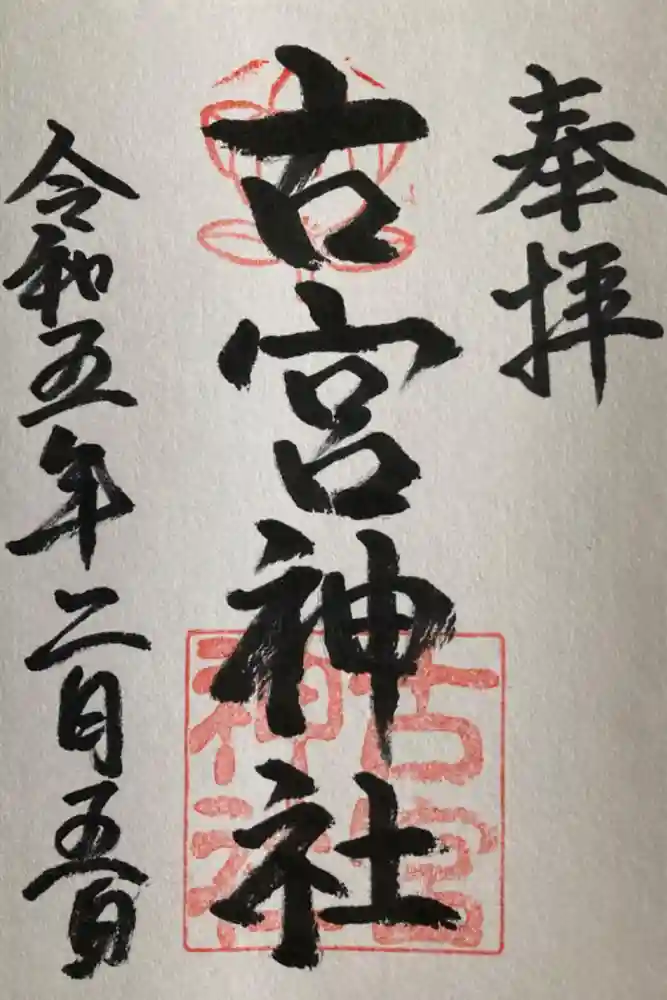 奉拝
古宮神社
古宮神社
令和五年二月五日